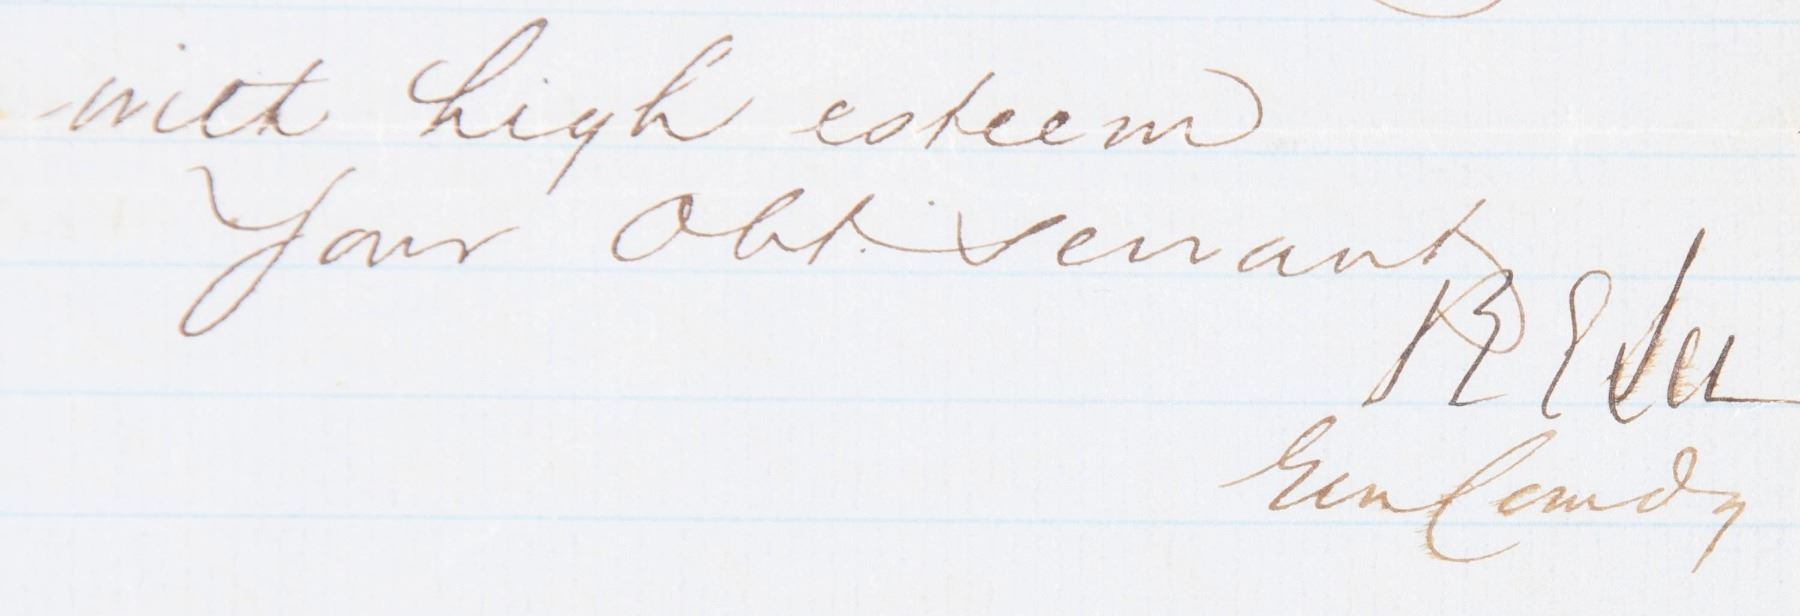 with high esteem
Your Obt. servant
R E Lee
Gen Comdg